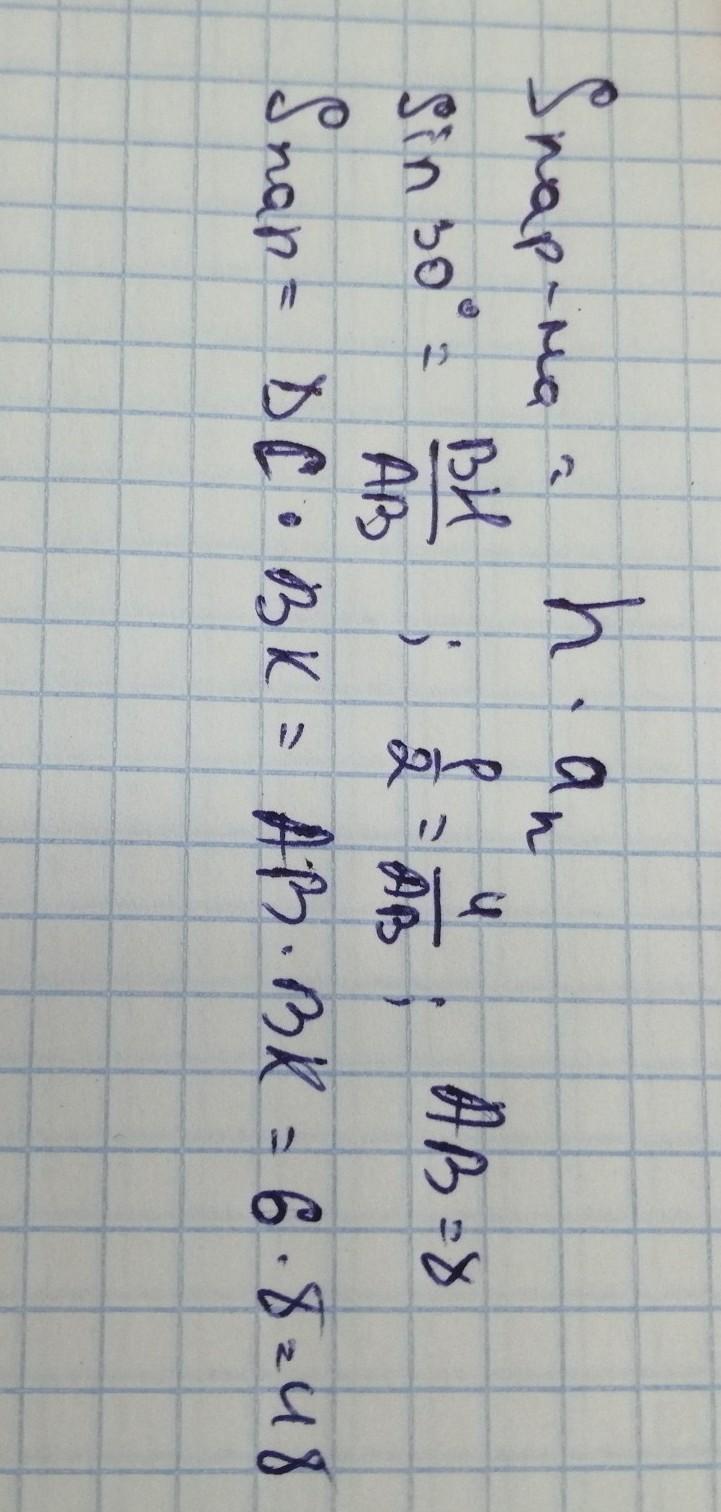 Sпар-ма = h · aₕ
sin 30° = BH/AB ; 1/2 = 4/AB ; AB = 8
Sпар = DC · BK = AB · BK = 6 · 8 = 48